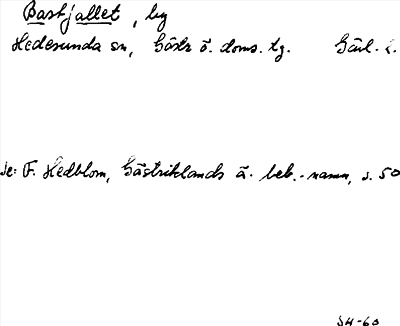 Bastjallet, by
Hedesunda sn, Gästr ö. doms. tg. Gävl. l.
Se: F. Hedblom, Gästriklands ä. beb.-namn, s. 50
SH-60